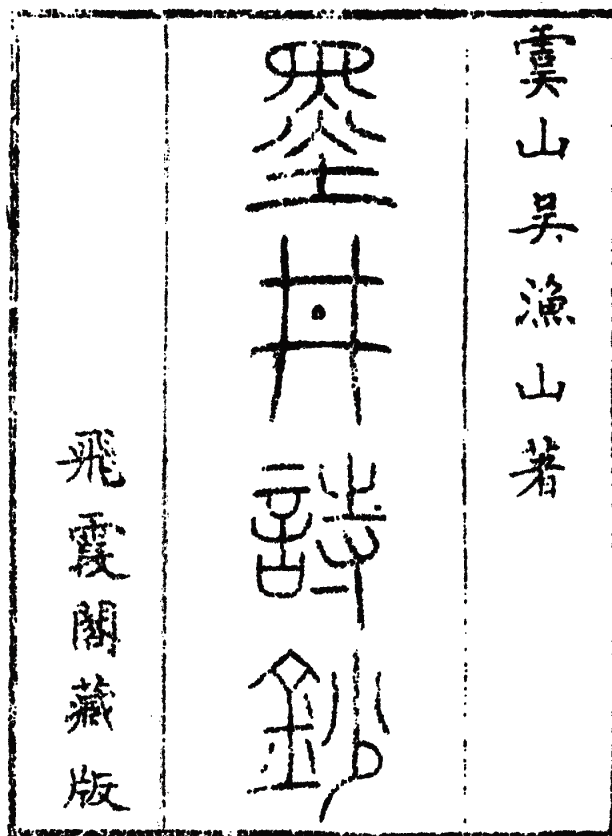 虞山吳漁山著
墨井詩鈔
飛霞閣藏版